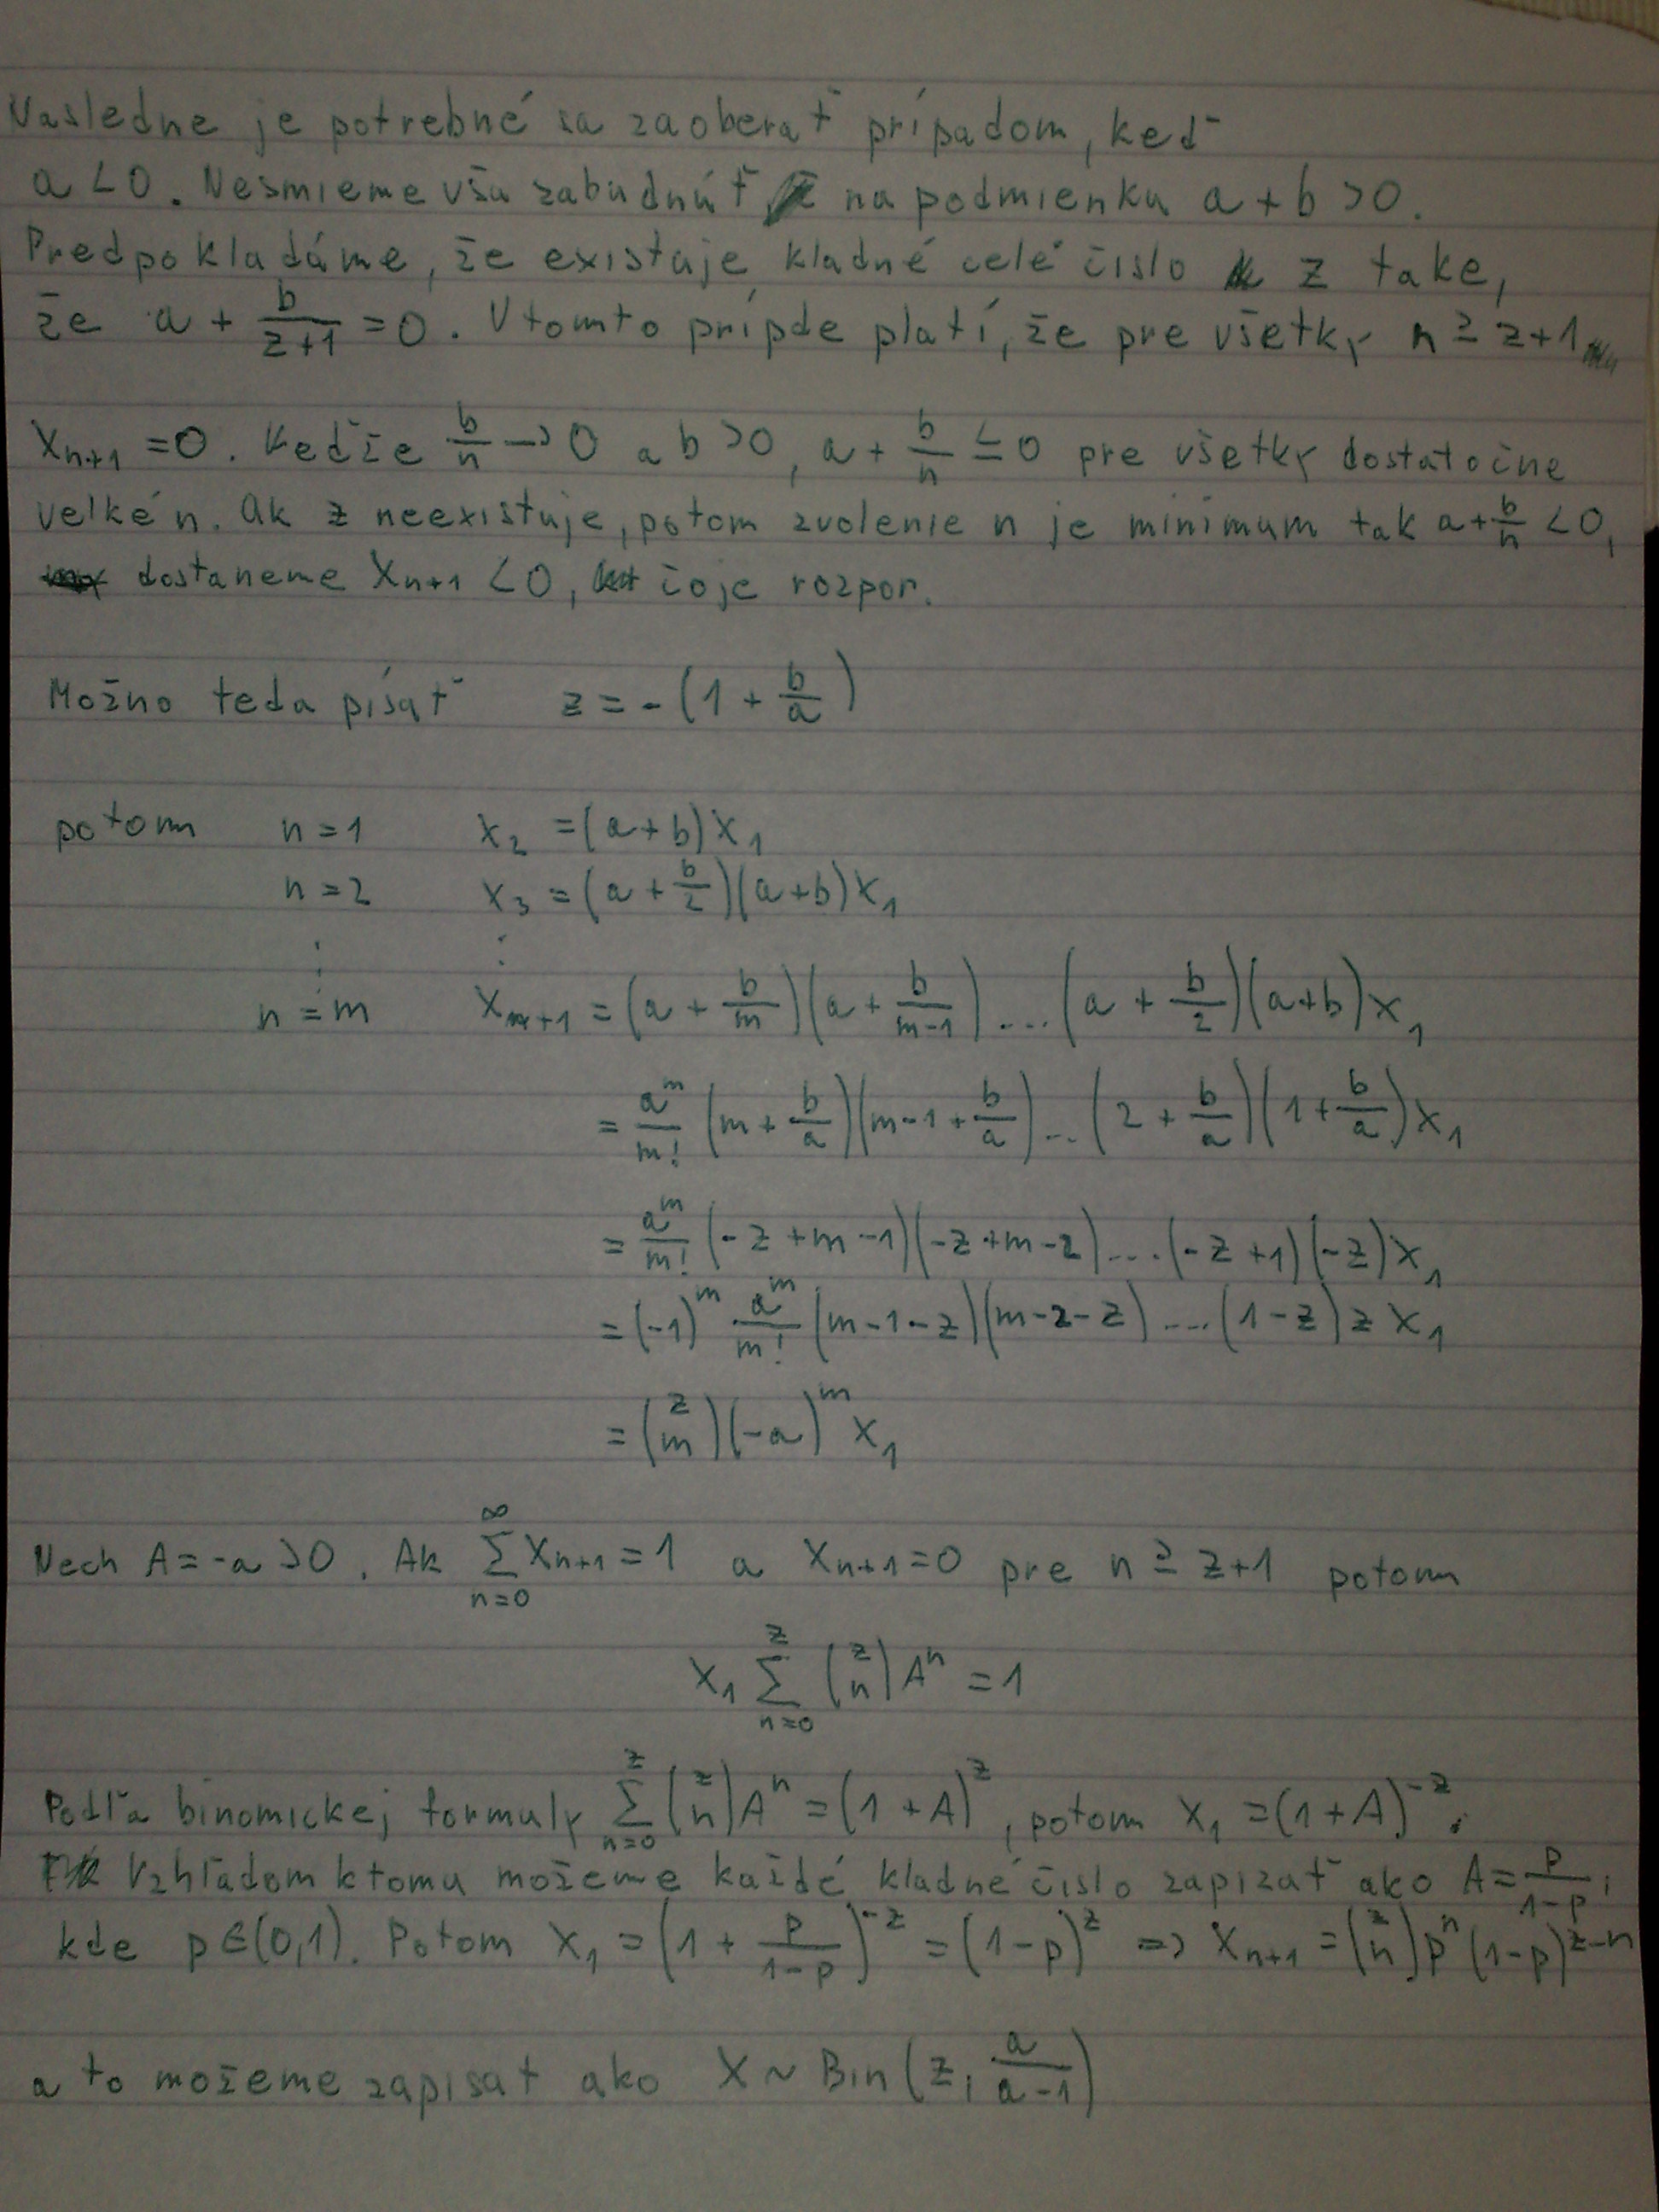 Následne je potrebné sa zaoberať prípadom, keď
a < 0. Nesmieme vša zabudnúť na podmienku a + b > 0.
Predpokladáme, že existuje kladné celé číslo z take,
že a + \frac{b}{z+1} = 0. V tomto prípde platí, že pre všetky n ≥ z+1
x_{n+1} = 0. Kedže \frac{b}{n} → 0 a b > 0, a + \frac{b}{n} ≤ 0 pre všetky dostatočne
velké n. Ak z neexistuje, potom zvolenie n je minimum tak a + \frac{b}{n} < 0,
dostaneme x_{n+1} < 0, čo je rozpor.
Možno teda písať z = -(1 + \frac{b}{a})
potom n = 1 x_2 = (a+b) x_1
n = 2 x_3 = (a + \frac{b}{2})(a+b) x_1
⋮ ⋮
n = m x_{m+1} = (a + \frac{b}{m})(a + \frac{b}{m-1}) .... (a + \frac{b}{2})(a+b) x_1
= \frac{a^m}{m!} (m + \frac{b}{a})(m-1 + \frac{b}{a}) ... (2 + \frac{b}{a})(1 + \frac{b}{a}) x_1
= \frac{a^m}{m!} (-z + m - 1)(-z + m - 2) .... (-z + 1)(-z) x_1
= (-1)^m \frac{a^m}{m!} (m-1-z)(m-2-z) .... (1-z) z x_1
= \binom{z}{m} (-a)^m x_1
Nech A = -a > 0. Ak \sum_{n=0}^{∞} x_{n+1} = 1 a x_{n+1} = 0 pre n ≥ z+1 potom
x_1 \sum_{n=0}^{z} \binom{z}{n} A^n = 1
Podľa binomickej formuly \sum_{n=0}^{z} \binom{z}{n} A^n = (1 + A)^z, potom x_1 = (1 + A)^{-z}.
Vzhľadom ktomu možeme každé kladné číslo zapizať ako A = \frac{p}{1-p},
kde p ∈ (0,1). Potom x_1 = (1 + \frac{p}{1-p})^{-z} = (1-p)^z ⇒ x_{n+1} = \binom{z}{n} p^n (1-p)^{z-n}
a to možeme zapisať ako X ~ Bin(z, \frac{a}{a-1})